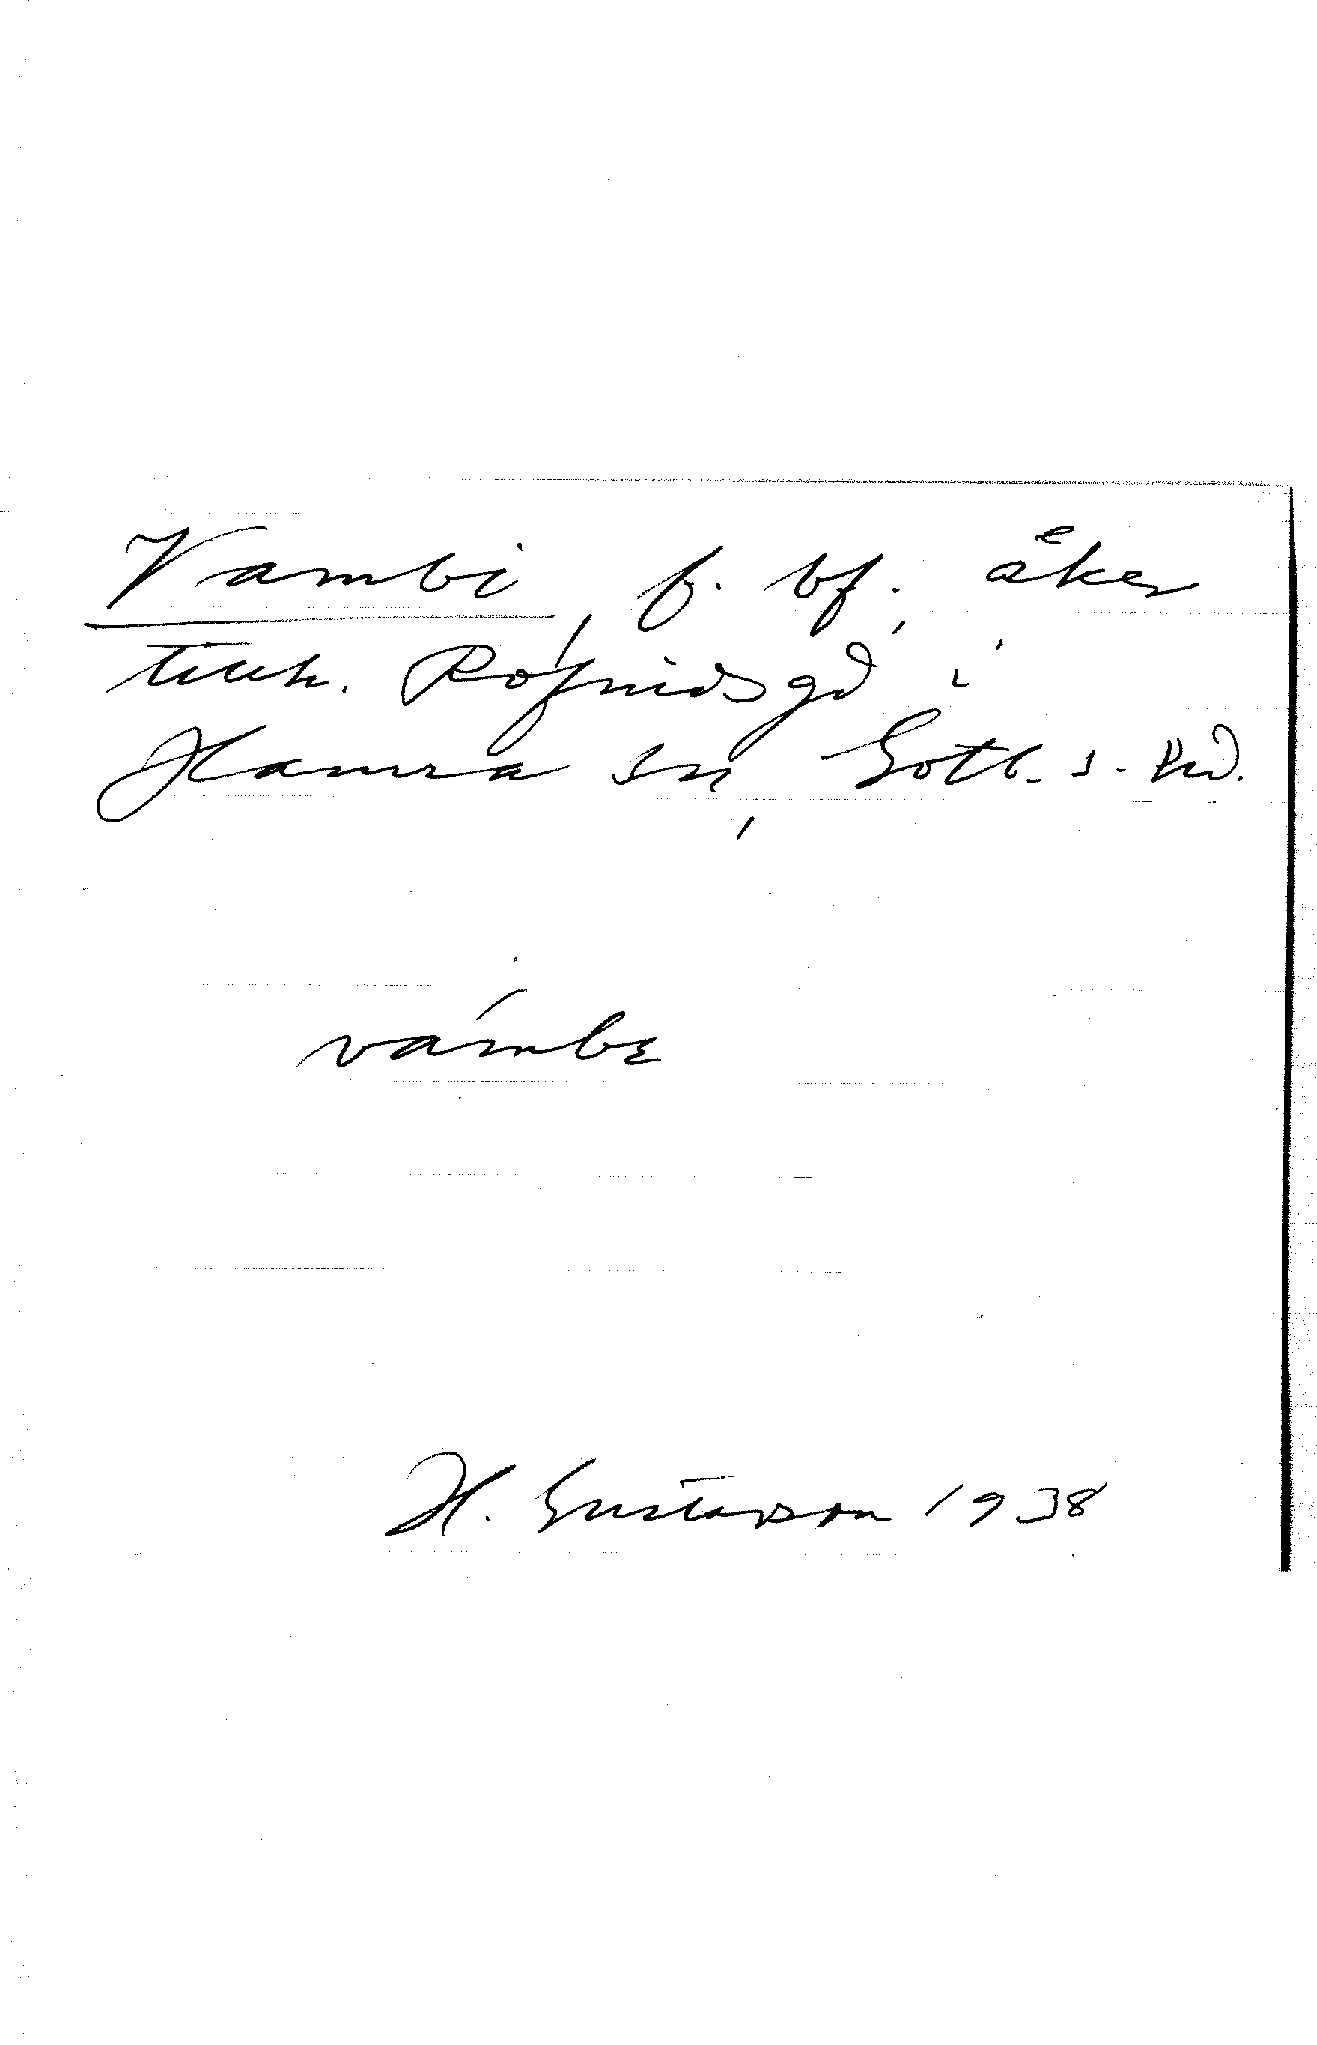 Vambi, f. bf., åker
tillh. Rofinds gd i
Hamra sn, Gotl. s. hd.
vámbɛ
H. Gustavson 1938